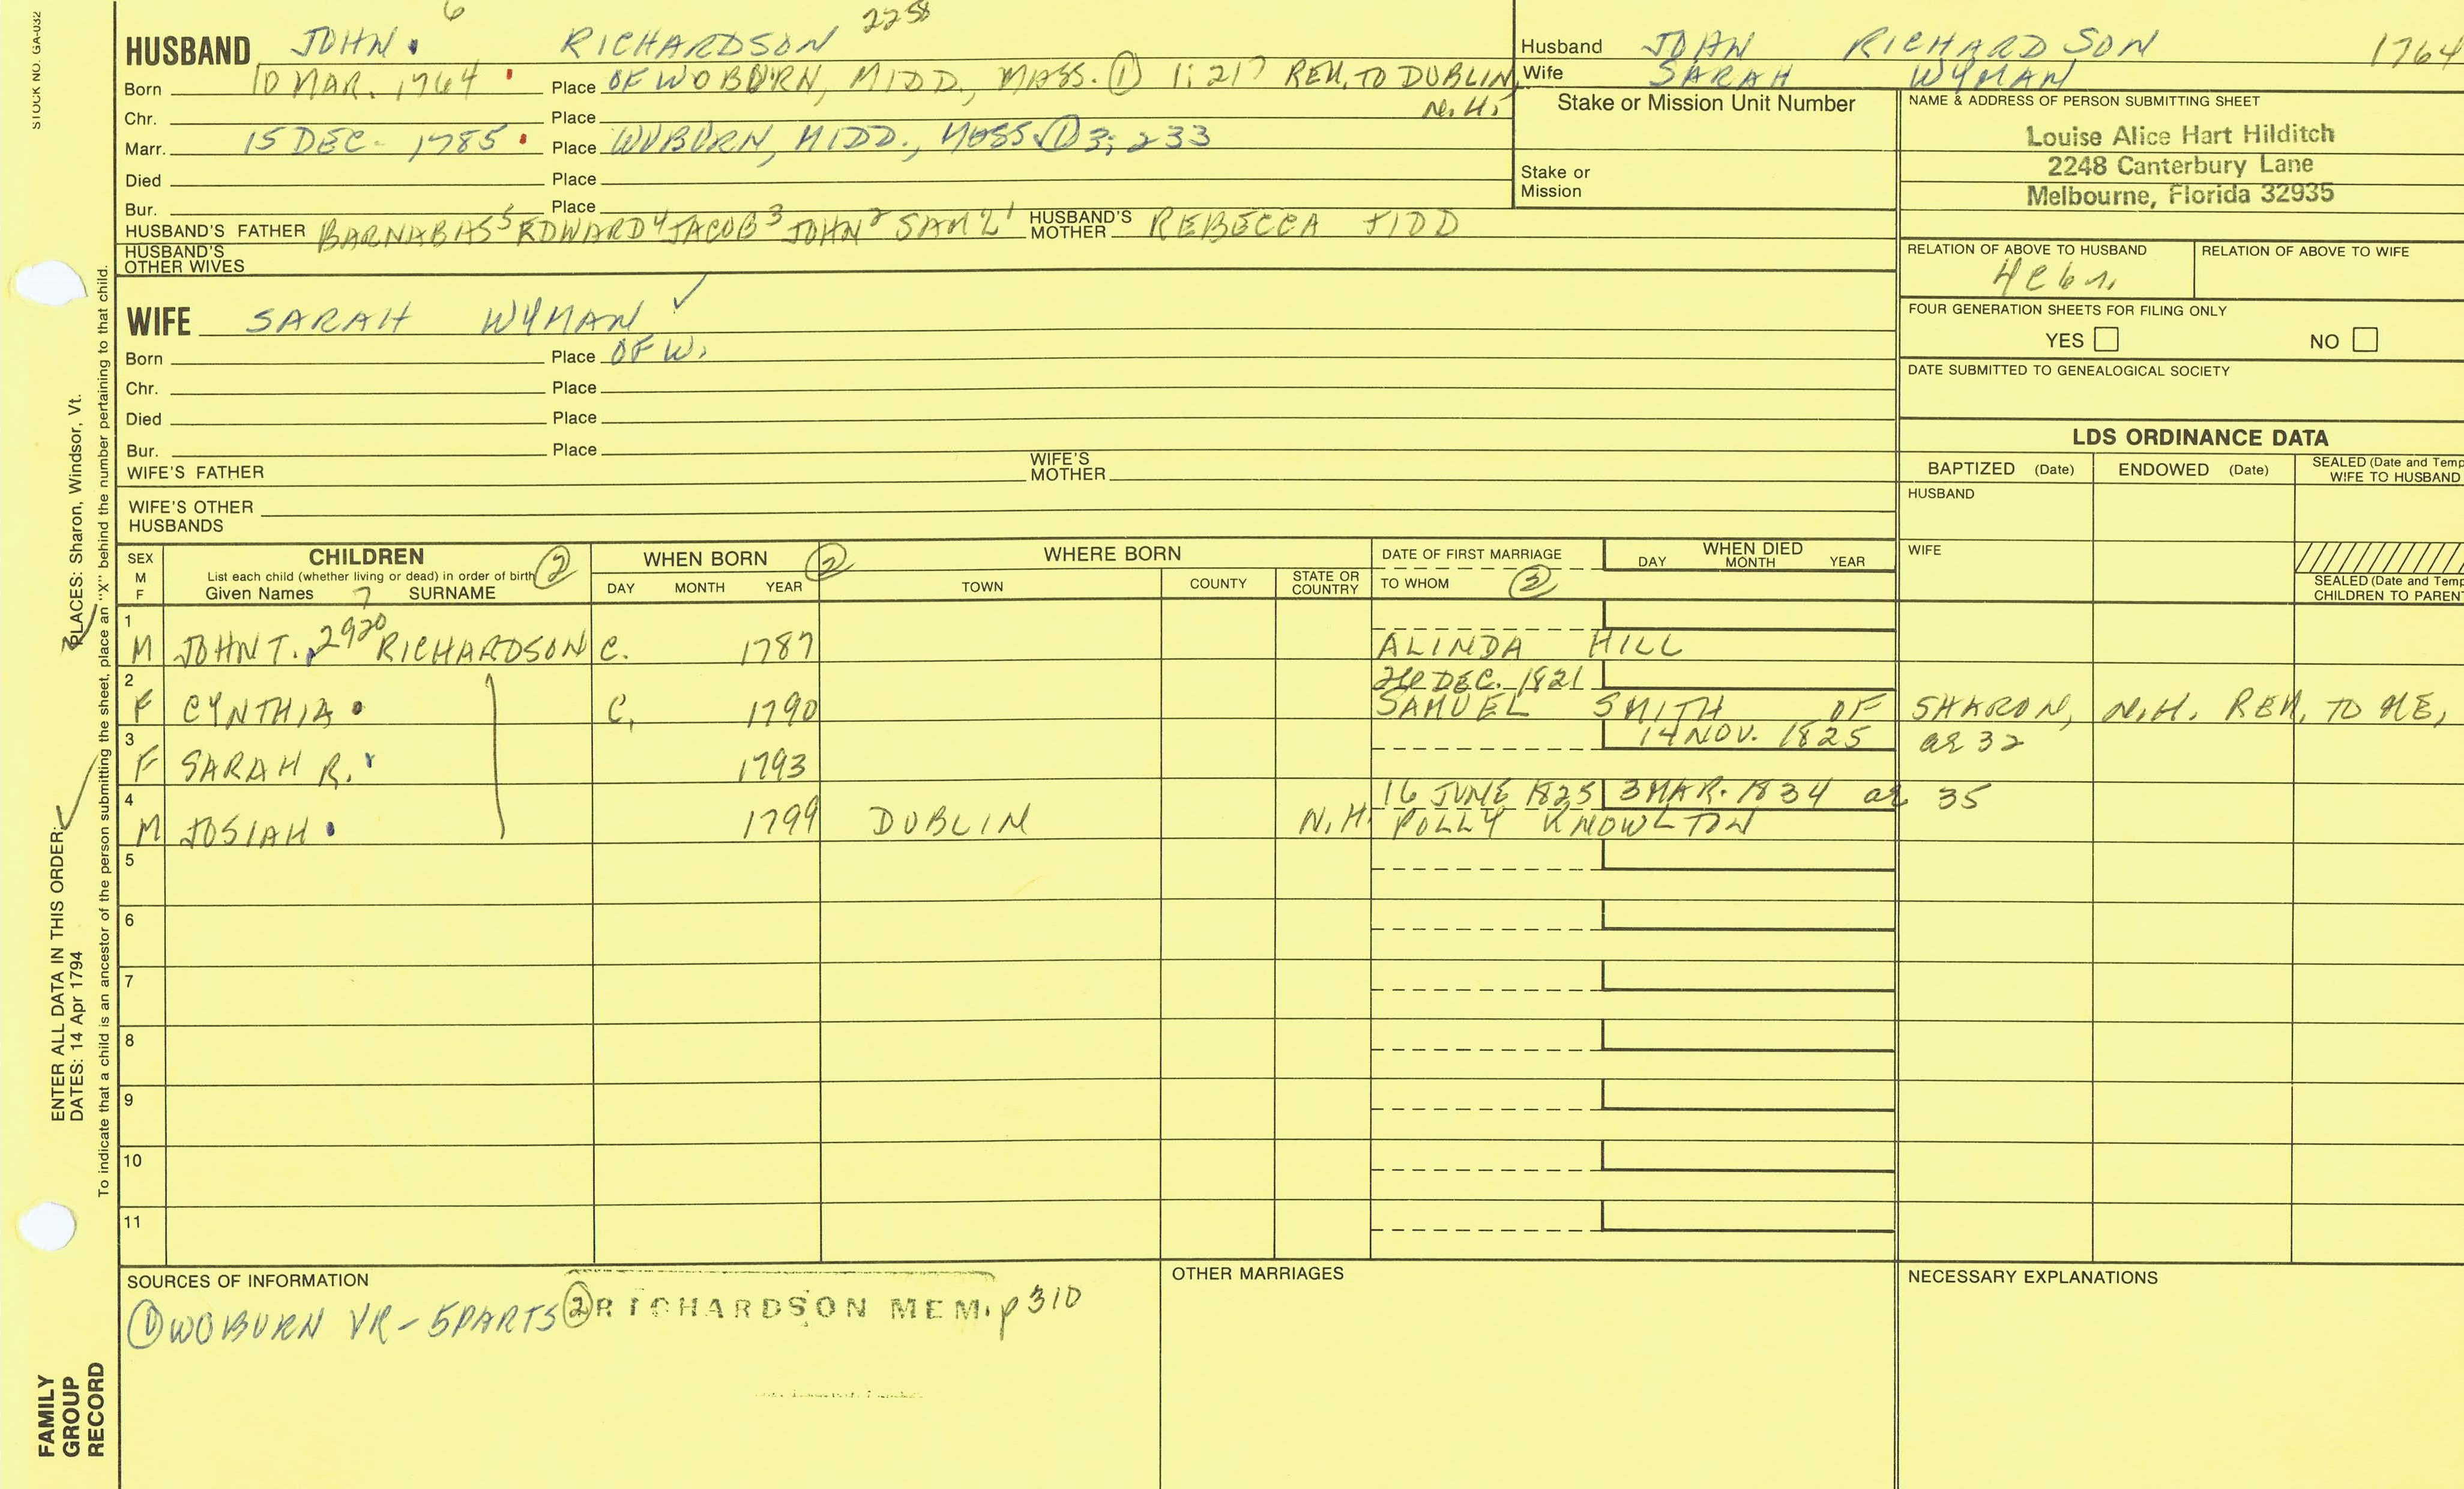 STOCK NO. GA-032
6
2258
HUSBAND JOHN. RICHARDSON
Born 10 MAR. 1764 Place OF WOBURN, MIDD., MASS. ① 1; 217 REM. TO DUBLIN,
N.H.
Chr. Place
Marr. 15 DEC. 1785 Place WOBURN, MIDD., MASS. ① 3; 233
Died Place
Bur. Place
HUSBAND'S FATHER BARNABAS⁵ EDWARD⁴ JACOB³ JOHN² SAM'L¹ HUSBAND'S MOTHER REBECCA TIDD
HUSBAND'S OTHER WIVES
Husband JOHN RICHARDSON 1764
Wife SARAH WYMAN
Stake or Mission Unit Number
Stake or Mission
NAME & ADDRESS OF PERSON SUBMITTING SHEET
Louise Alice Hart Hilditch
2248 Canterbury Lane
Melbourne, Florida 32935
RELATION OF ABOVE TO HUSBAND RELATION OF ABOVE TO WIFE
FOUR GENERATION SHEETS FOR FILING ONLY
YES NO
DATE SUBMITTED TO GENEALOGICAL SOCIETY
WIFE SARAH WYMAN ✓
Born Place OF W.
Chr. Place
Died Place
Bur. Place
WIFE'S FATHER WIFE'S MOTHER
WIFE'S OTHER HUSBANDS
LDS ORDINANCE DATA
BAPTIZED (Date) ENDOWED (Date) SEALED (Date and Temp
WIFE TO HUSBAND
HUSBAND
WIFE
SEALED (Date and Temp
CHILDREN TO PARENT
SEX M F
CHILDREN ②
List each child (whether living or dead) in order of birth
Given Names 7 SURNAME
WHEN BORN ②
DAY MONTH YEAR
WHERE BORN
TOWN COUNTY STATE OR COUNTRY
DATE OF FIRST MARRIAGE
TO WHOM ②
WHEN DIED
DAY MONTH YEAR
1
M JOHN T. 2920 RICHARDSON C. 1787 ALINDA HILL
2 DEC. 1821
F CYNTHIA C. 1790 SAMUEL SMITH OF SHARON, N.H. REM. TO ME,
3 14 NOV. 1825 ae 32
F SARAH R. 1793
4 16 JUNE 1825 3 MAR. 1834 ae 35
M JOSIAH 1799 DUBLIN N.H. POLLY KNOWLTON
5
6
7
8
9
10
11
SOURCES OF INFORMATION
① WOBURN VR - 5 PARTS ② RICHARDSON MEM. p 310
OTHER MARRIAGES
NECESSARY EXPLANATIONS
ENTER ALL DATA IN THIS ORDER:
DATES: 14 Apr 1794 PLACES: Sharon, Windsor, Vt.
To indicate that a child is an ancestor of the person submitting the sheet, place an "X" behind the number pertaining to that child.
FAMILY
GROUP
RECORD